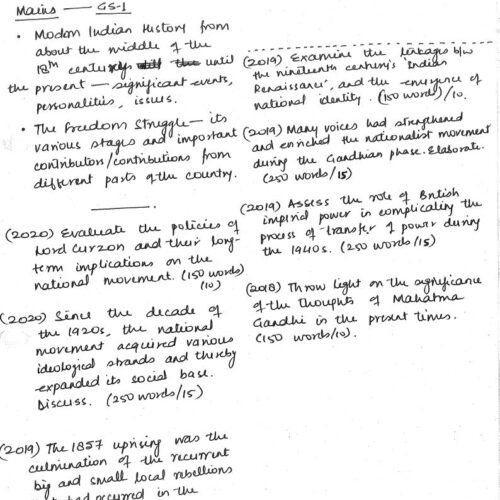 Mains — GS-1
• Modern Indian History from
about the middle of the
18th century until
the present — significant events,
personalities, issues.
• The Freedom Struggle — its
various stages and important
contributors/contributions from
different parts of the country.
(2020) Evaluate the policies of
Lord Curzon and their long-
term implications on the
national movement. (150 words)
(10)
(2020) Since the decade of
the 1920s, the national
movement acquired various
ideological strands and thereby
expanded its social base.
Discuss. (250 words/15)
(2019) The 1857 uprising was the
culmination of the recurrent
big and small local rebellions
had occurred in the
(2019) Examine the linkages b/w
the nineteenth century's 'Indian
Renaissance', and the emergence of
national identity. (150 words)/10.
(2019) Many voices had strengthened
and enriched the nationalist movement
during the Gandhian phase. Elaborate.
(250 words/15)
(2019) Assess the role of British
imperial power in complicating the
process of transfer of power during
the 1940s. (250 words/15)
(2018) Throw light on the significance
of the thoughts of Mahatma
Gandhi in the present times.
(150 words/10).